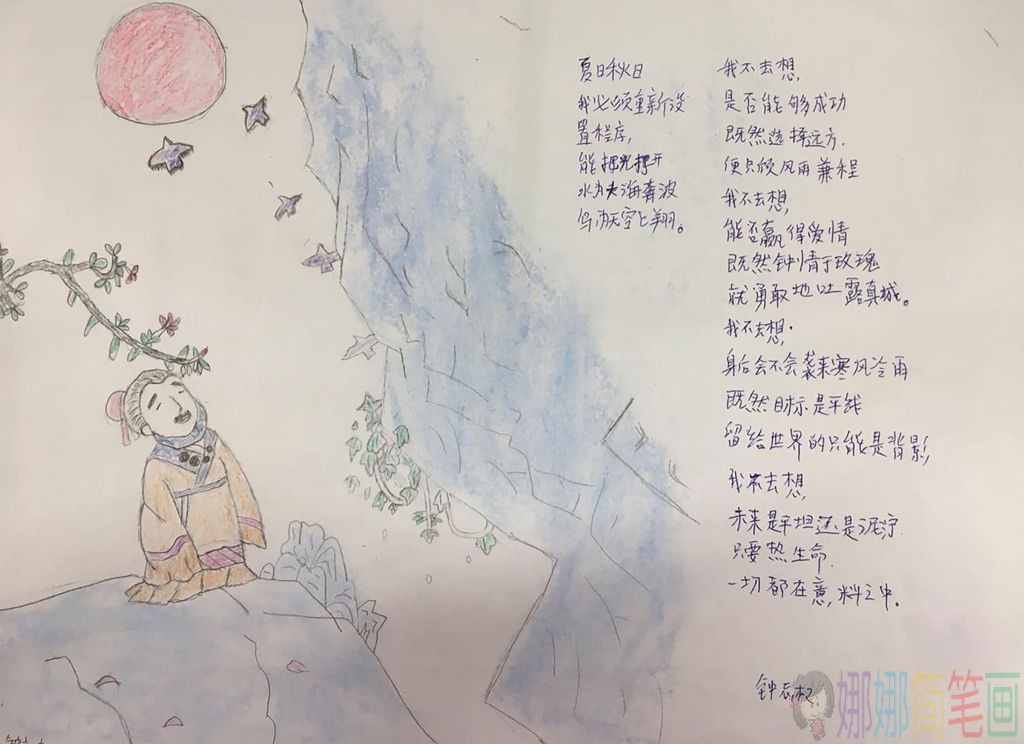 夏日秋日
我必须重新设
置程序,
能把光撑开
水为大海奔波
鸟为天空上翔。
我不去想,
是否能够成功
既然选择远方.
便只顾风雨兼程
我不去想,
能否赢得爱情
既然钟情于玫瑰
就勇敢地吐露真城。
我不去想,
身后会不会袭来寒风冷雨
既然目标是平线
留给世界的只能是背影,
我不去想,
未来是平坦还是泥泞
只要热生命.
一切都在意,料之中。
娜娜简笔画